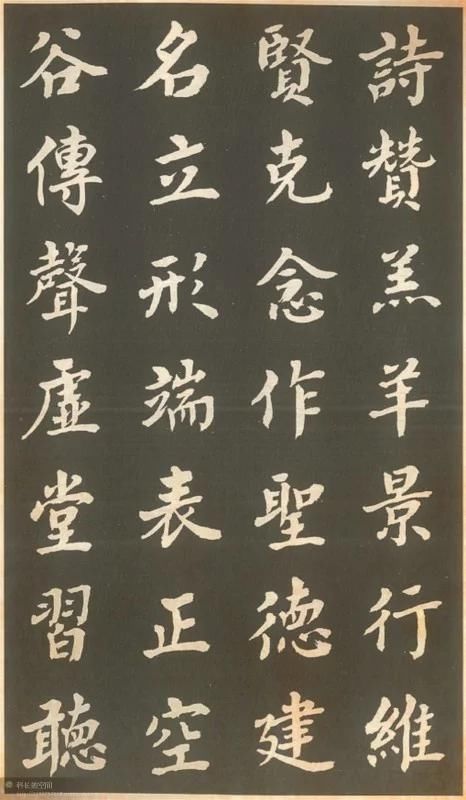 詩贊羔羊景行維
賢克念作聖德建
名立形端表正空
谷傳聲虛堂習聽
科长的空间